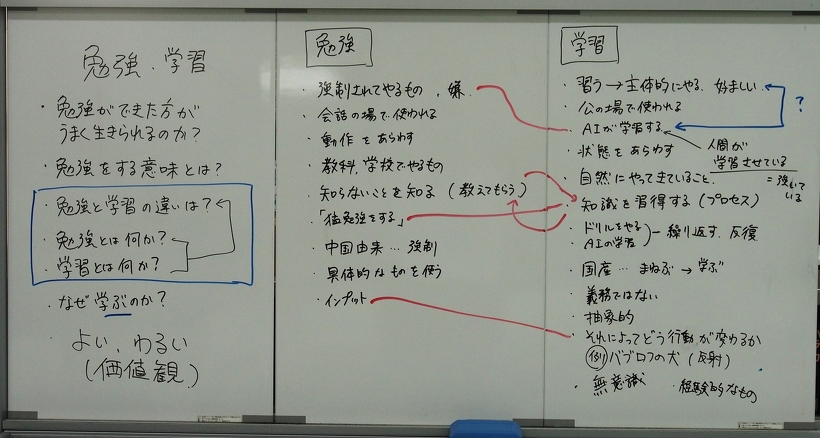 勉強・学習
・勉強ができた方が
うまく生きられるのか？
・勉強をする意味とは？
・勉強と学習の違いは？
・勉強とは何か？
・学習とは何か？
・なぜ学ぶのか？
・よい、わるい
（価値観）
勉強
・強制されてやるもの、嫌
・会話の場で使われる
・動作をあらわす
・教科、学校でやるもの
・知らないことを知る（教えてもらう）
・「猛勉強をする」
・中国由来…強制
・具体的なものを使う
・インプット
学習
・習う→主体的にやる、好ましい
？
・公の場で使われる
・AIが学習する
人間が
学習させている
＝強いて
いる
・状態をあらわす
・自然にやってきていること、
・知識を習得する（プロセス）
・ドリルをやる
AIの学習
繰り返す、反復
・国産…まねぶ→学ぶ
・義務ではない
・抽象的
・それによってどう行動が変わるか
例）パブロフの犬（反射）
・無意識 ・経験的なもの